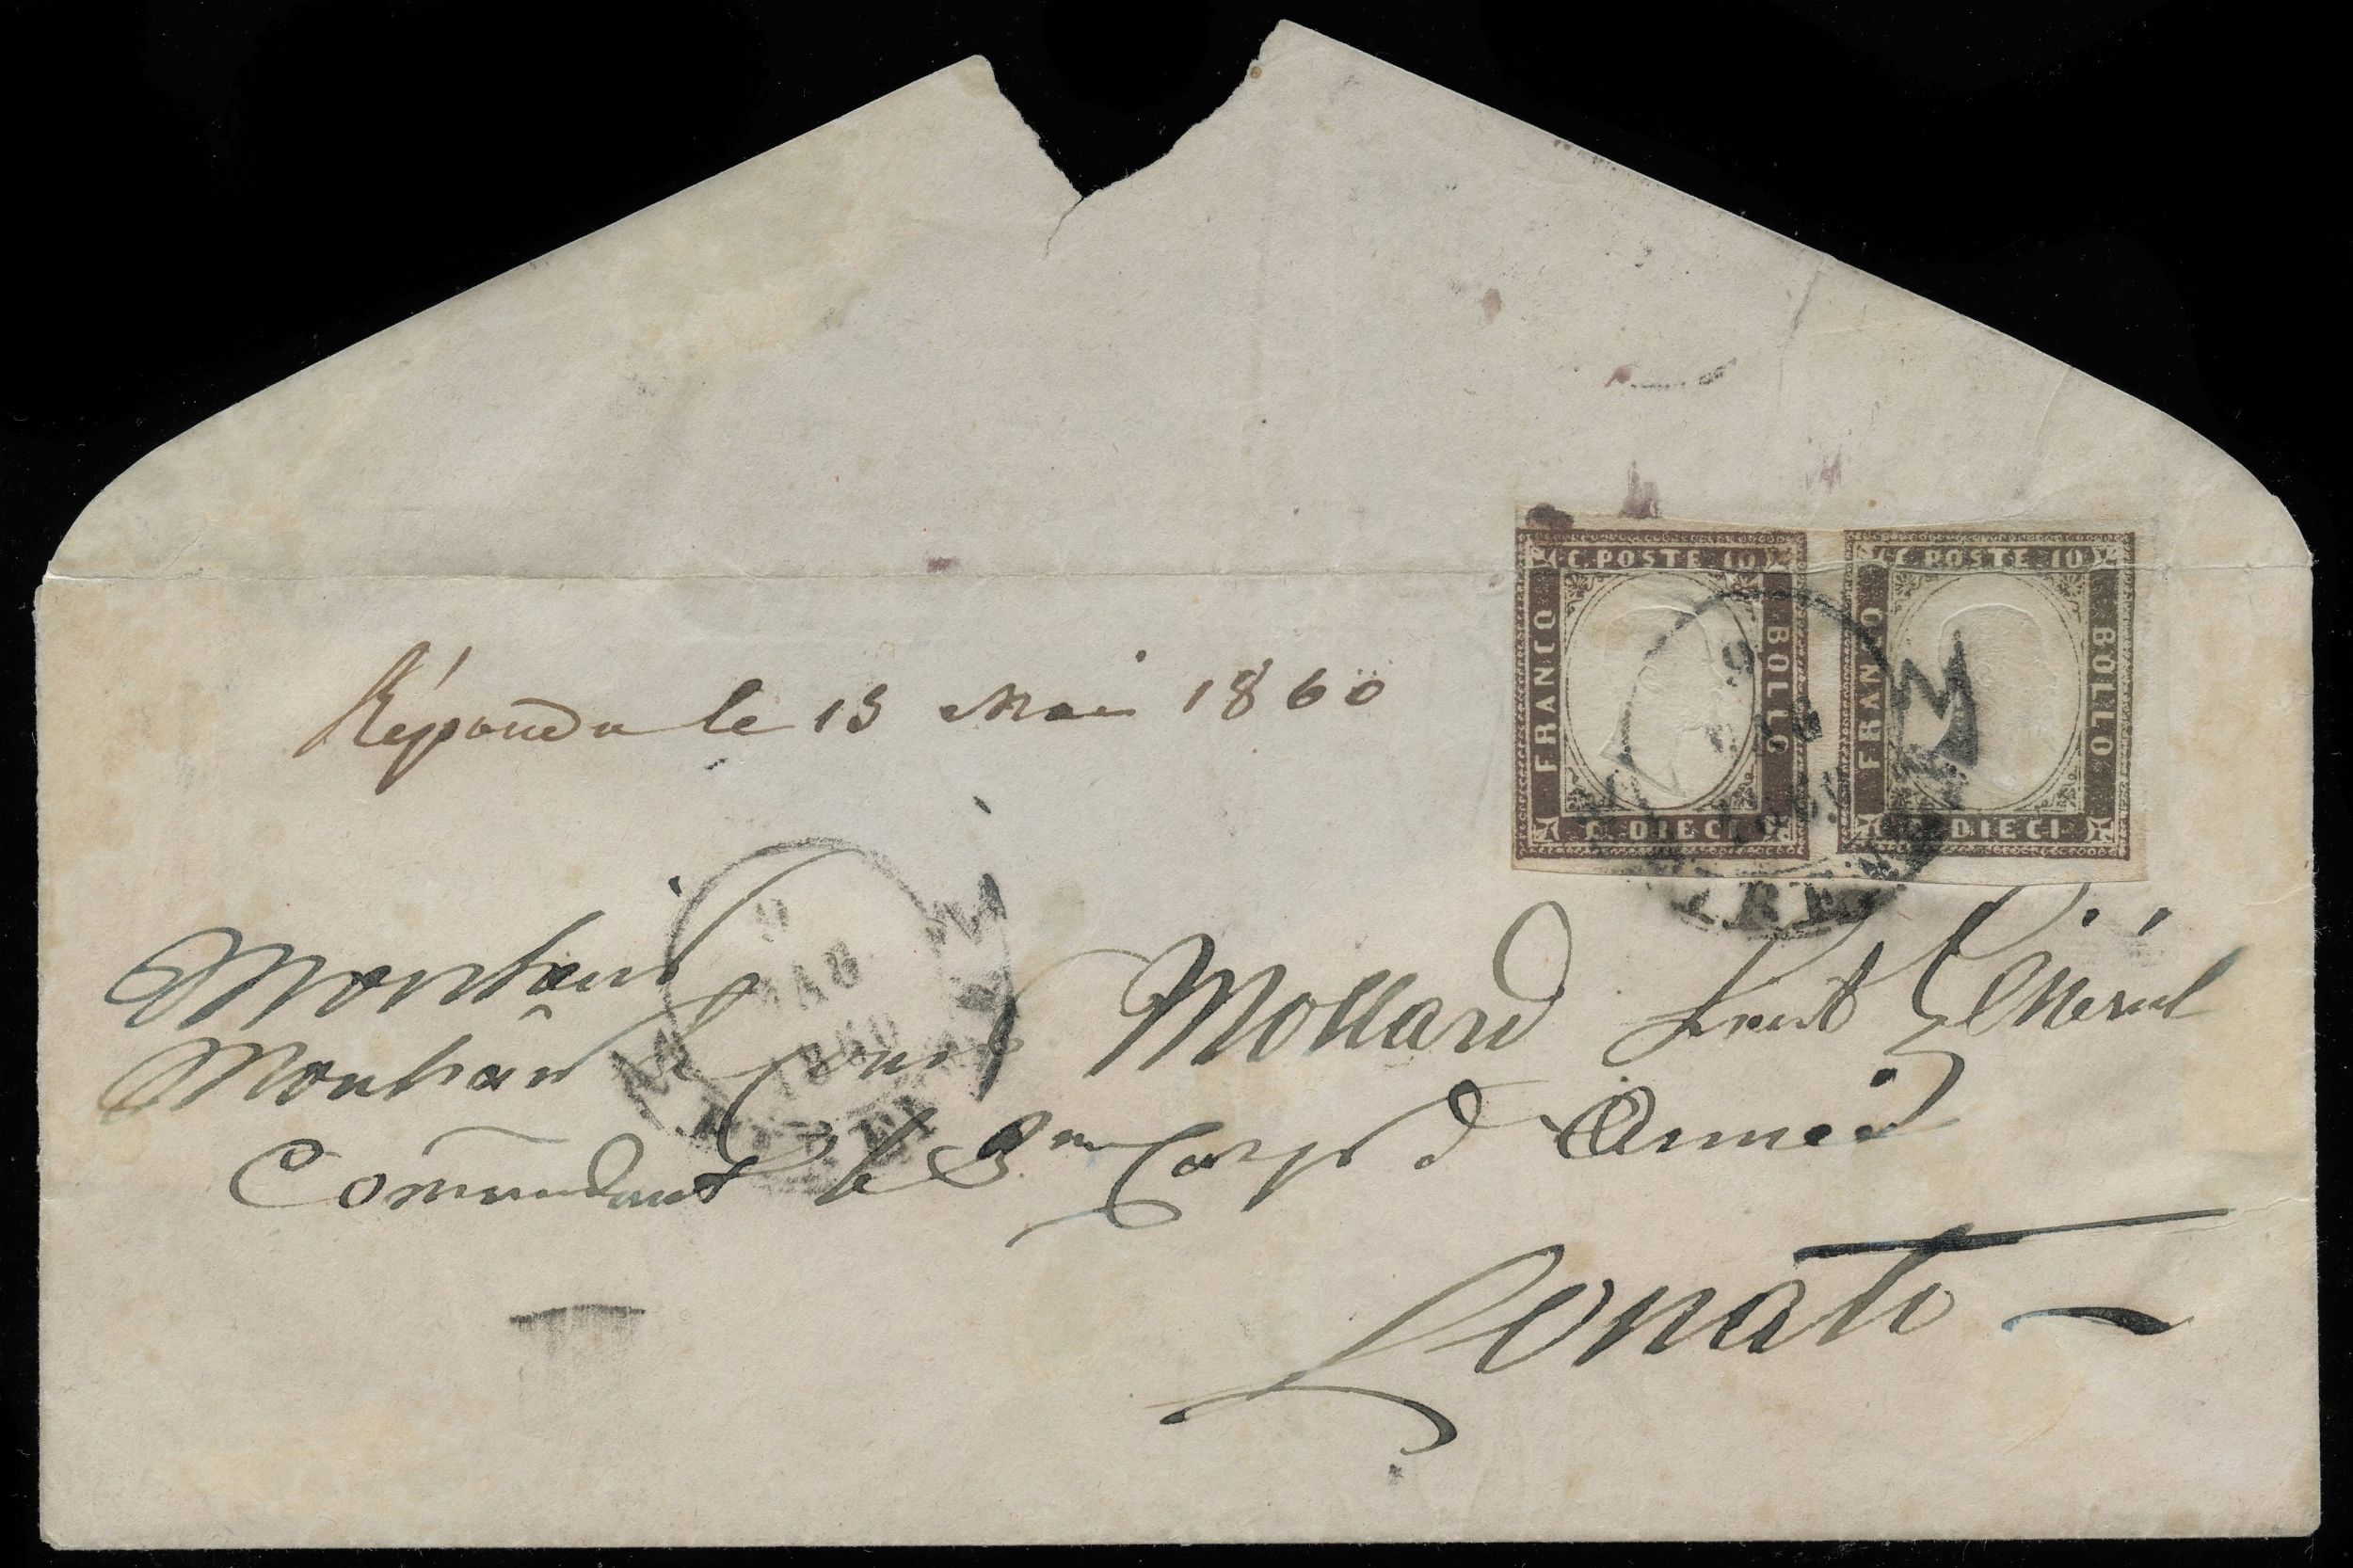 C. POSTE 10
FRANCO
BOLLO
C. DIECI
C. POSTE 10
FRANCO
BOLLO
C. DIECI
9
FIRENZE
Répondu le 13 Mai 1860
9
MAG
1860
FIRENZE
Monsieur
Monsieur le Comte Mollard Lieut Général
Commandant le 3me Corps d'Armée
Lonato